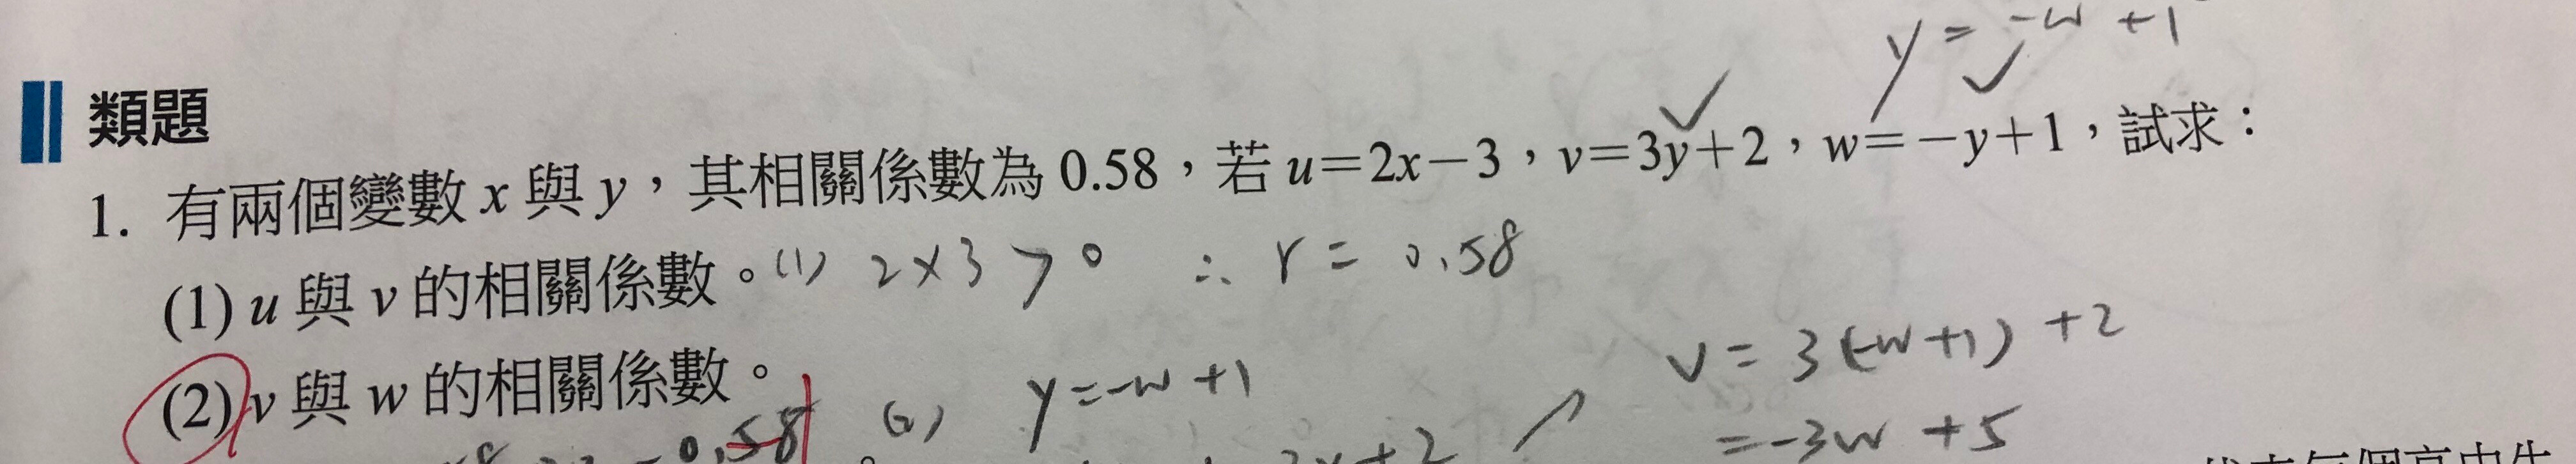 y = -w + 1
類題
1. 有兩個變數 x 與 y，其相關係數為 0.58，若 u=2x-3，v=3y+2，w=-y+1，試求：
(1) u 與 v 的相關係數。(1) 2×3 > 0 ∴ r = 0.58
(2) v 與 w 的相關係數。
(2) y = -w + 1
v = 3(-w+1) + 2
= -3w + 5
-0.58